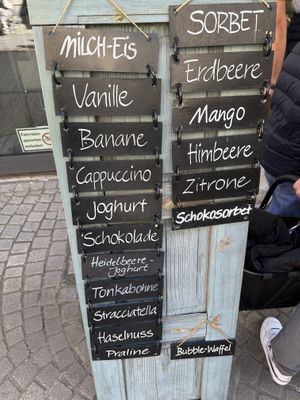 MILCH-EiS
Vanille
Banane
Cappuccino
Joghurt
Schokolade
Heidelbeere-
Joghurt
Tonkabohne
Stracciatella
Haselnuss
Praline
SORBET
Erdbeere
Mango
Himbeere
Zitrone
Schokosorbet
Bubble-Waffel